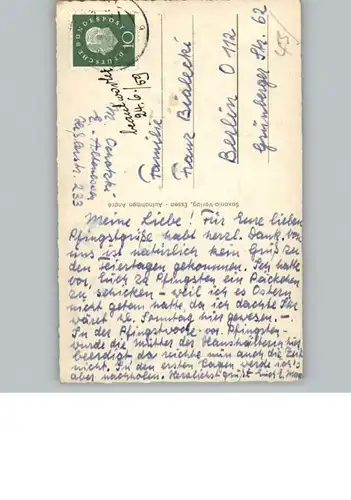 DEUTSCHE BUNDESPOST
10
beantwortet
24./6./59
Essen-Altenessen
233
Familie
Franz Bialecki
Berlin O 112
Grünberger Str. 62
Saxonia-Verlag, Essen - Aufnahmen André
Meine Liebe! Für Eure lieben
Pfingstgrüße habt herzl. Dank. Von
uns ist natürlich kein Gruß zu
den Feiertagen gekommen. Ich hatte
vor, Euch zu Pfingsten ein Päckchen
zu schicken - weil ich es Ostern
nicht getan hatte, da ich dachte Ihr
wäret Sonntag hier gewesen. -
In der Pfingstwoche vor Pfingsten
wurde die Mutter der Haushälterin hier
beerdigt da reichte mir auch die Zeit
nicht. In den ersten Tagen werde ich's
aber nachholen. Herzlichst grüßt Euch